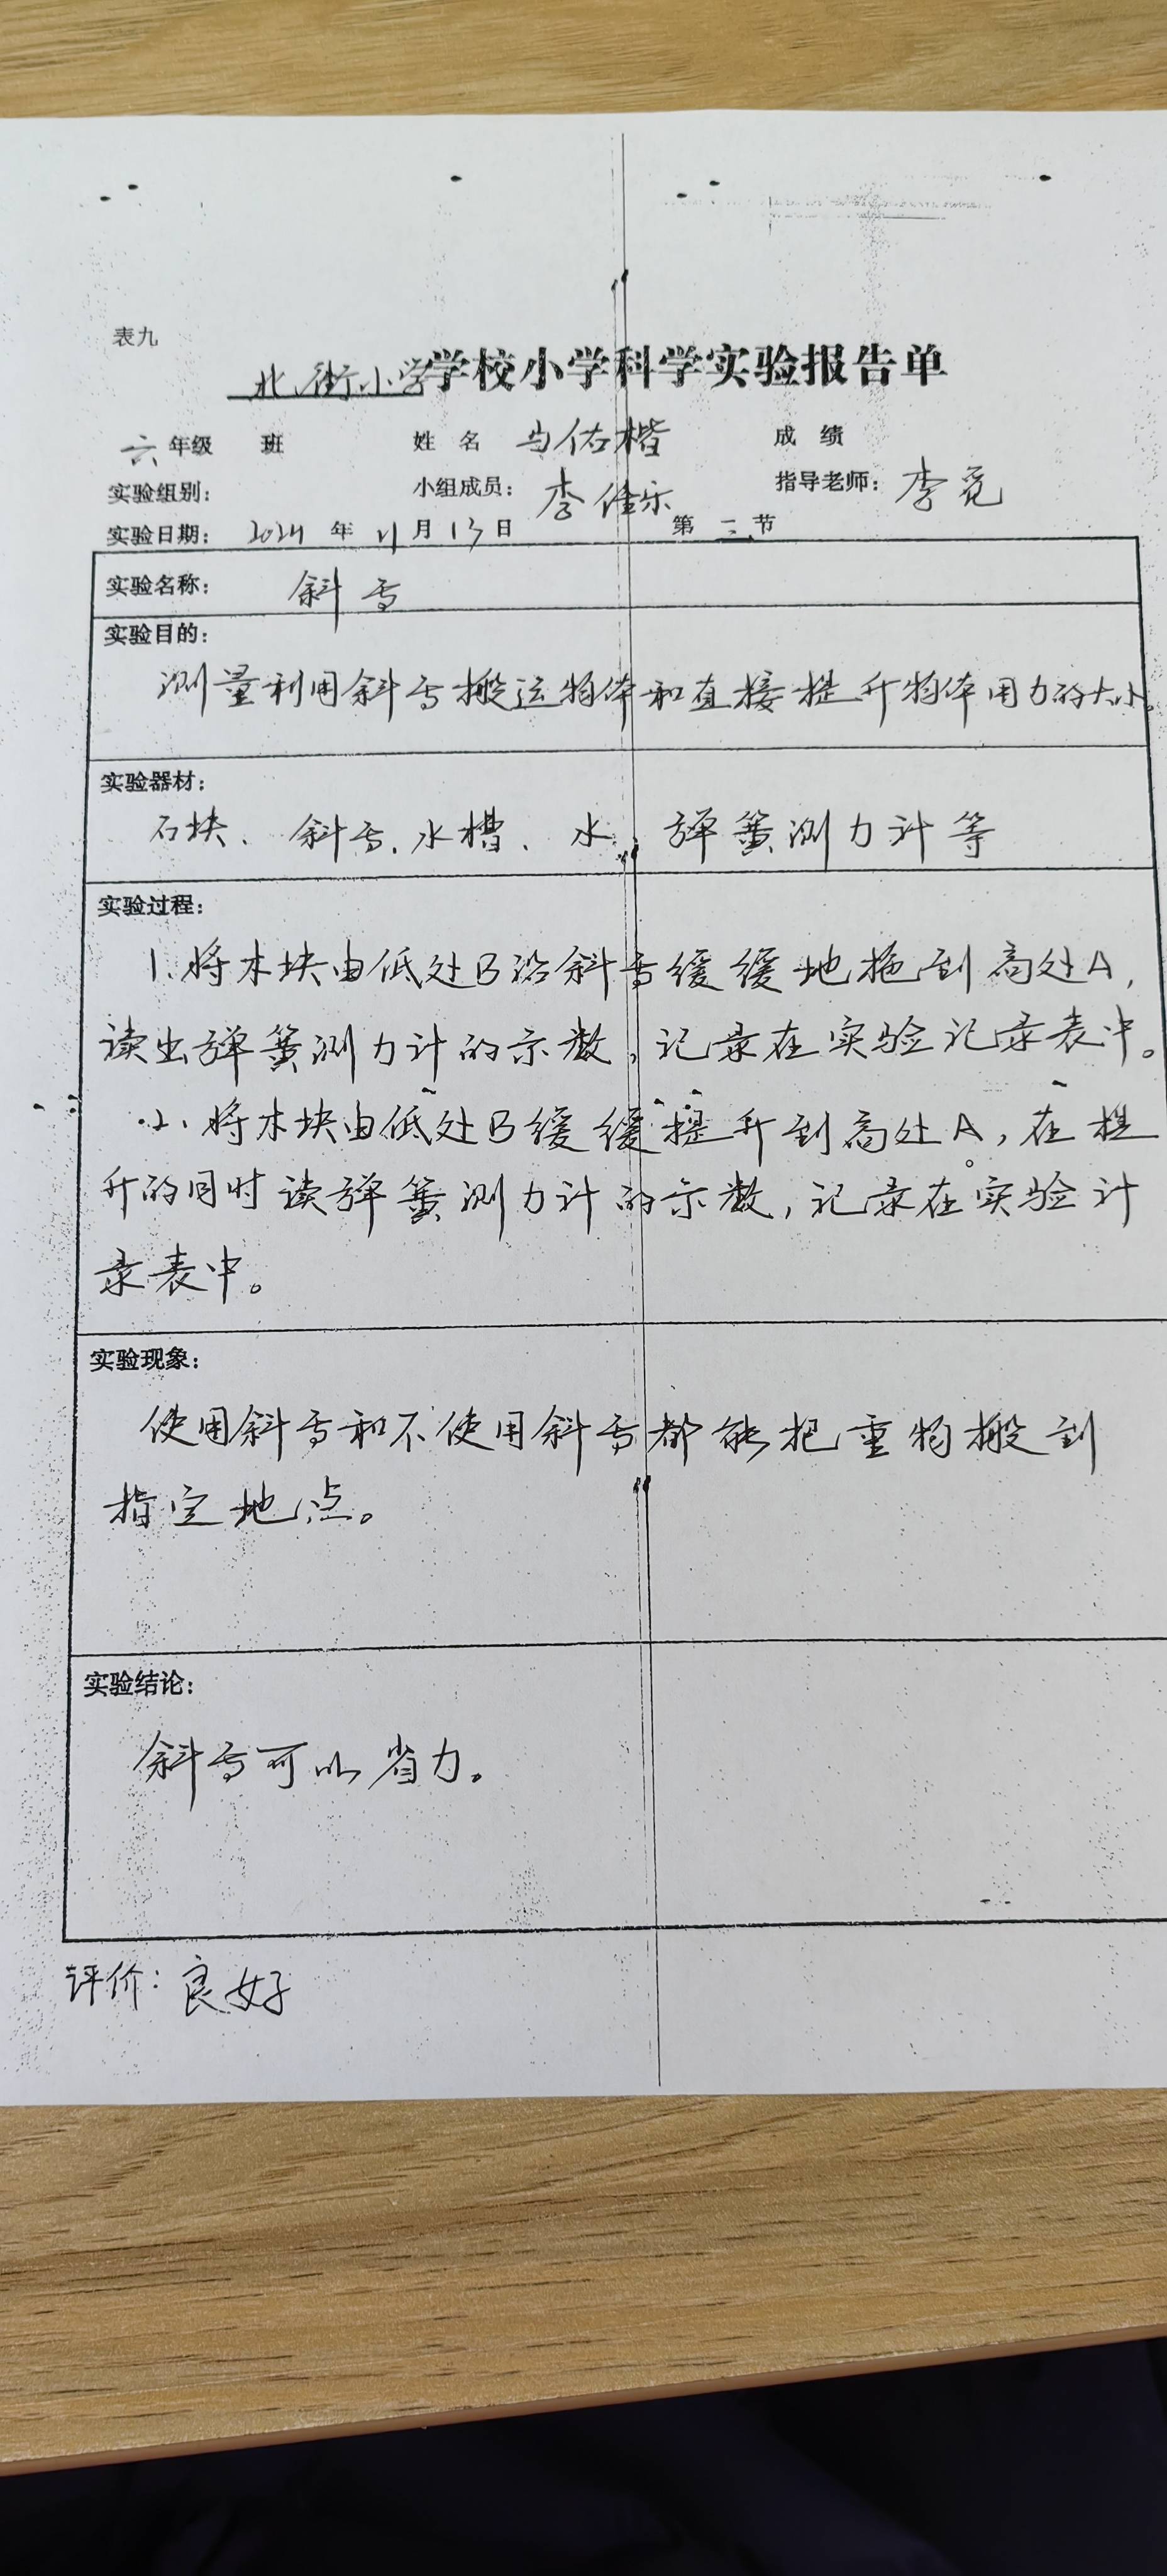 表九
北街小学学校小学科学实验报告单
六年级 班 姓名 马佑楷 成绩
实验组别： 小组成员：李佳乐 指导老师：李
实验日期：2024年 月13日 第二节
实验名称： 斜面
实验目的：
测量利用斜面搬运物体和直接提升物体用力的大小。
实验器材：
石块、斜面、水槽、水、弹簧测力计等
实验过程：
1、将木块由低处B沿斜面缓缓地拖到高处A，
读出弹簧测力计的示数，记录在实验记录表中。
2、将木块由低处B缓缓提升到高处A，在提
升的同时读弹簧测力计的示数，记录在实验计
录表中。
实验现象：
使用斜面和不使用斜面都能把重物搬到
指定地点。
实验结论：
斜面可以省力。
评价：良好